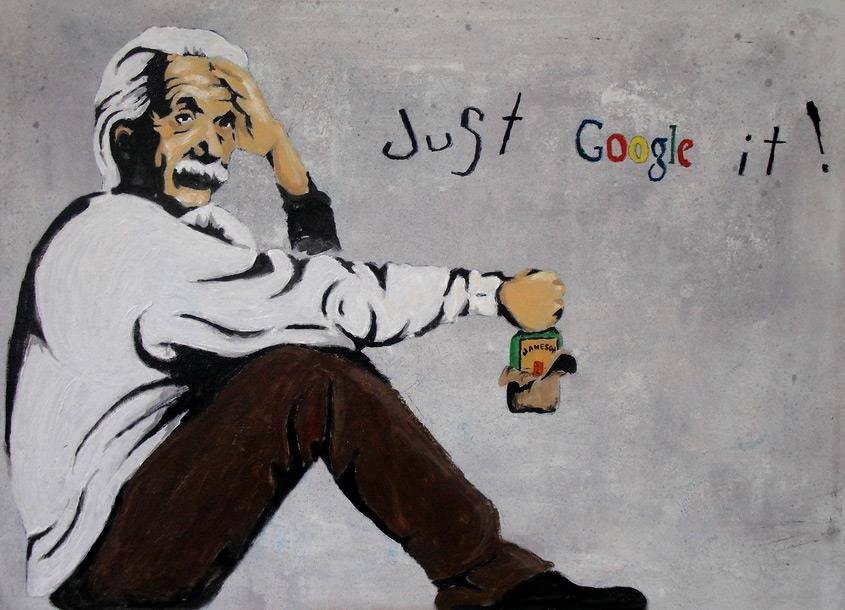 Just Google it!
JAMESON